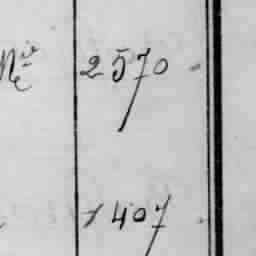 2570 -
1407 -